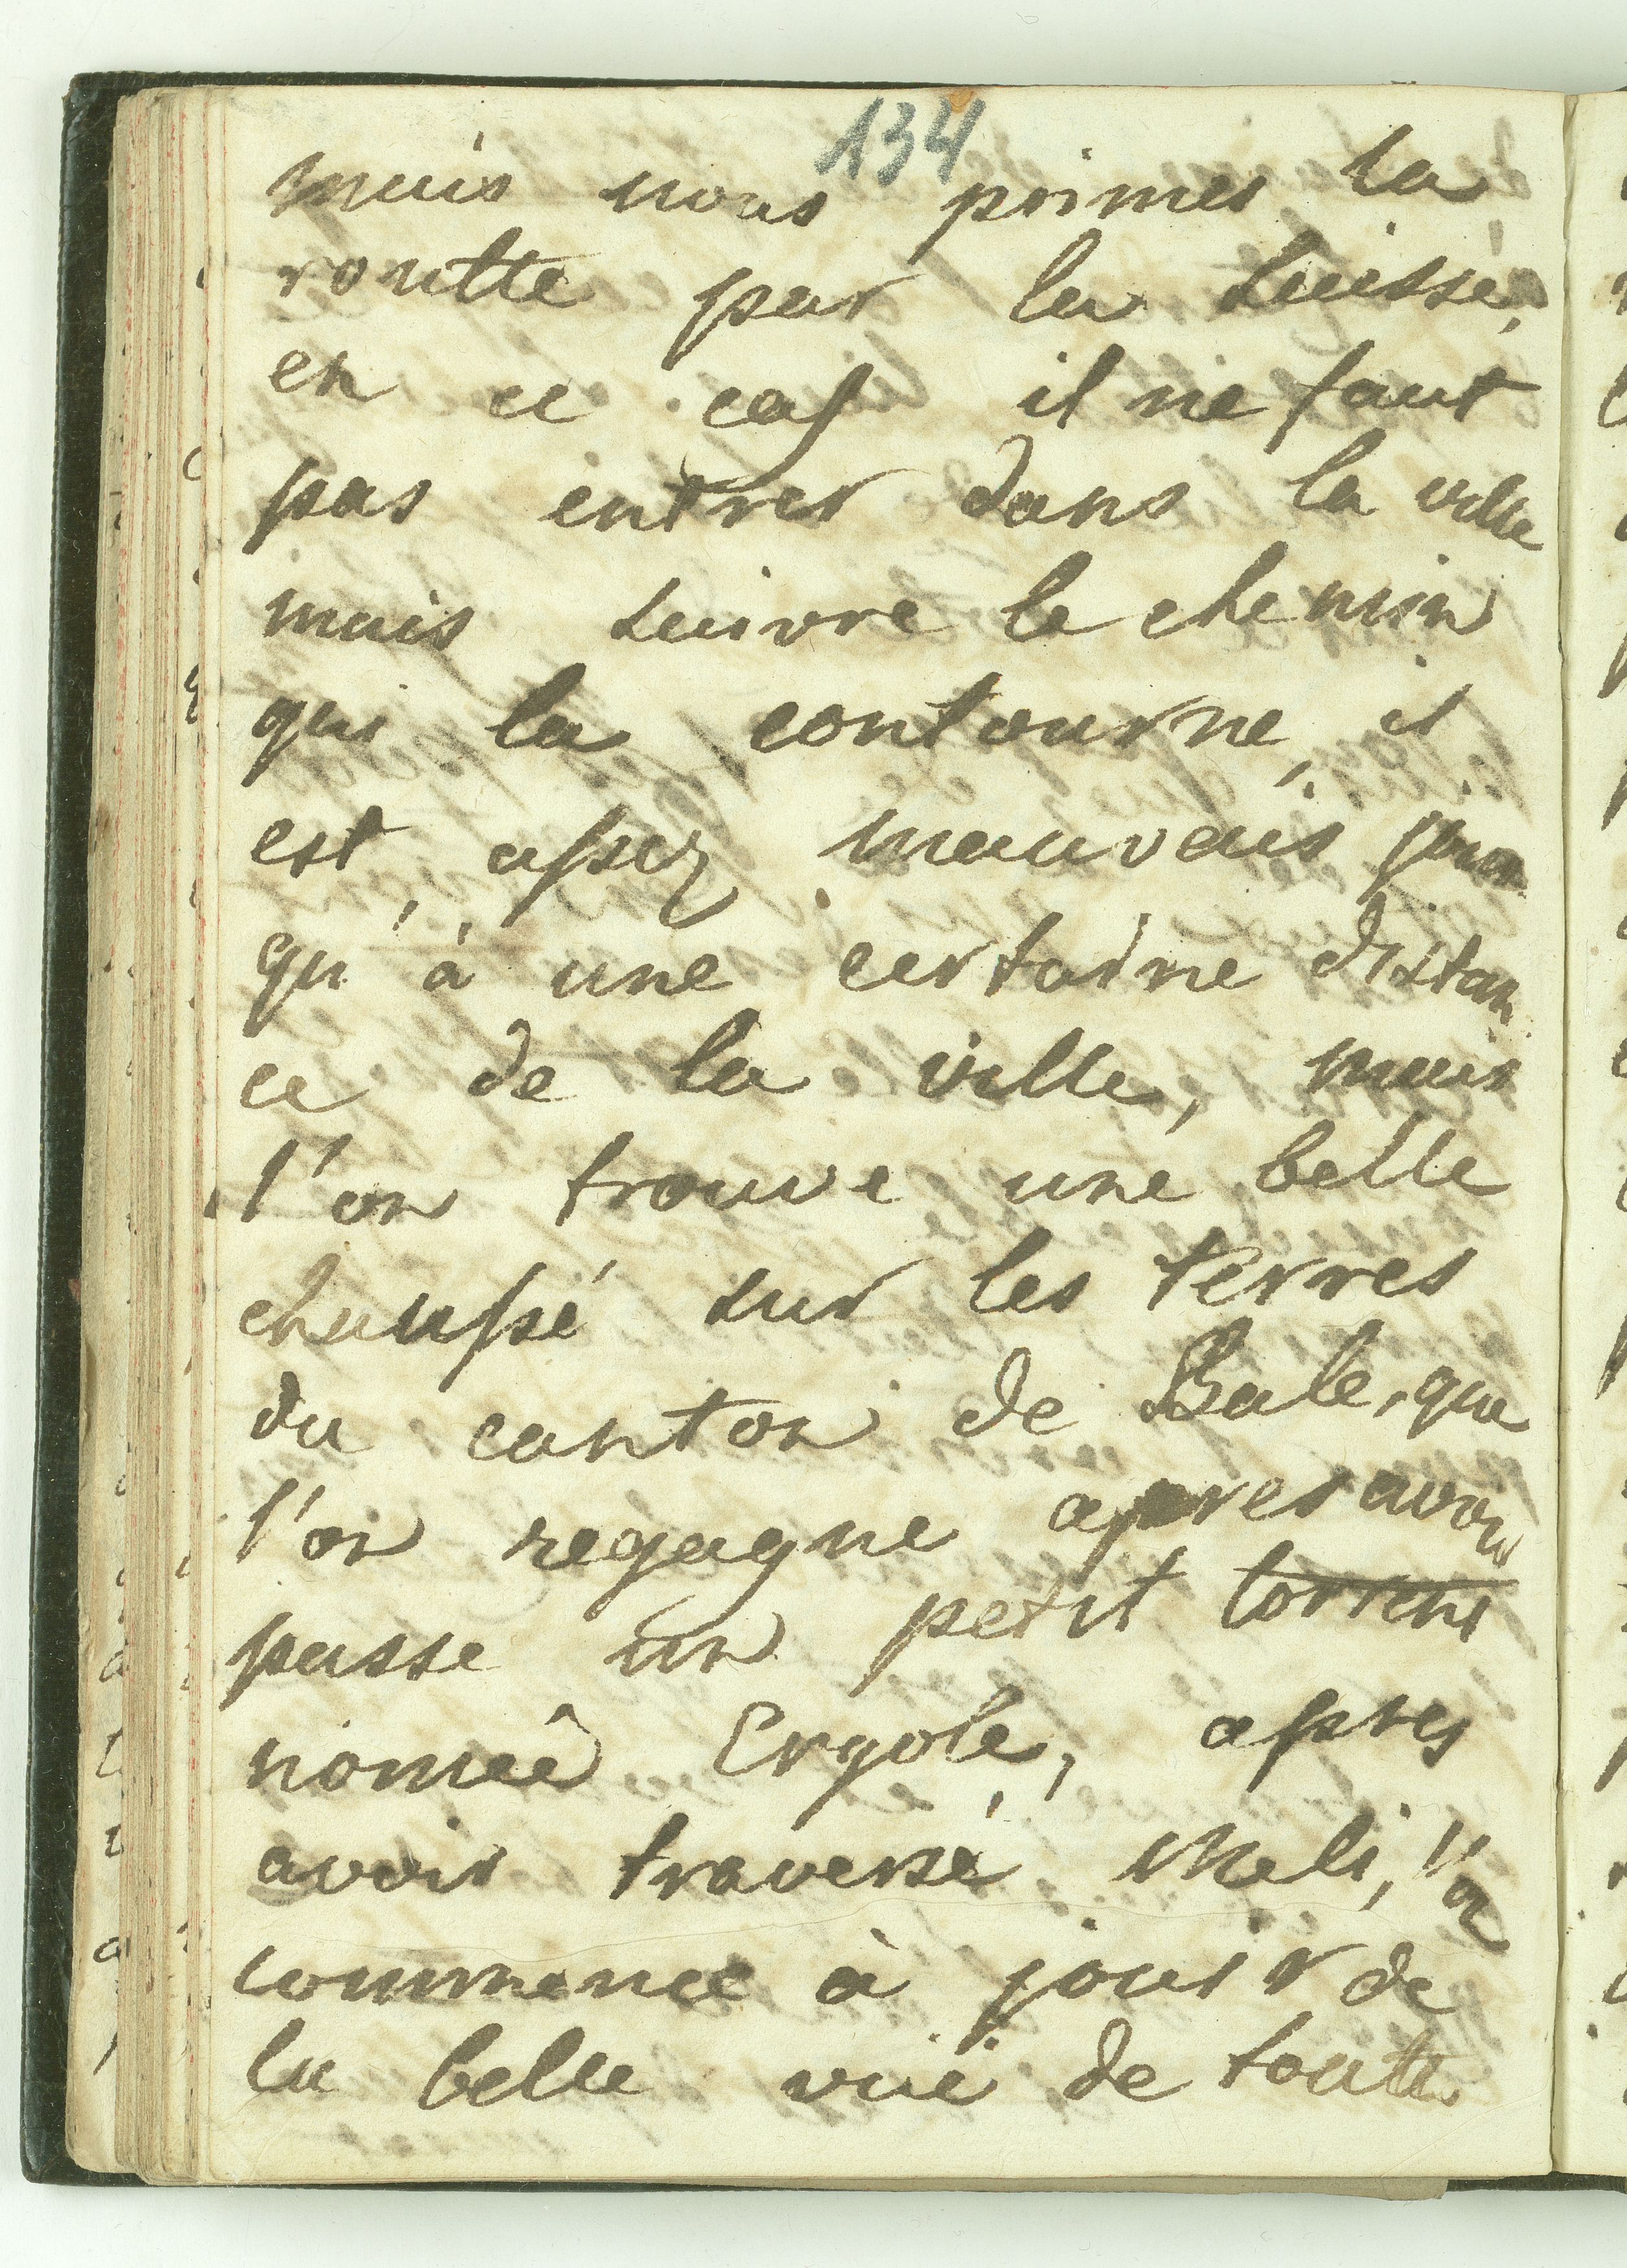 134
mais nous primes la
routte par la Suisse,
en ce cas il ne faut
pas entrer dans la ville
mais suivre le chemin
qui la contourne, il
est assez mauvais
qu'à une certaine distan
ce de la ville, mais
l'on trouve une belle
chaussé sur les terres
du canton de Bale, que
l'on regagne apres avoir
passe un petit torrent
nomeê Ergole, apres
avoir traversé Meli, l'on
commence à jouir de
la belle vuë de toutte